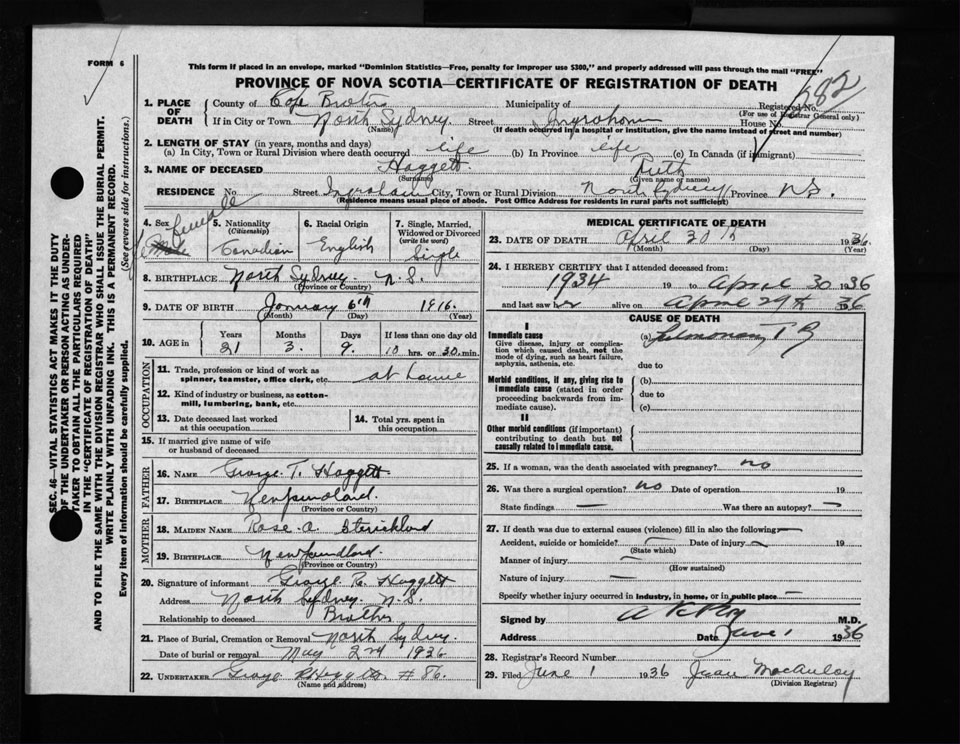 FORM 6
This form if placed in an envelope, marked "Dominion Statistics—Free, penalty for improper use $300," and properly addressed will pass through the mail "FREE"
PROVINCE OF NOVA SCOTIA—CERTIFICATE OF REGISTRATION OF DEATH
1. PLACE OF DEATH County of Cape Breton Municipality of Registered No. 282
(For use of Registrar General only)
If in City or Town North Sydney Street Ingraham House No.
(Name) (If death occurred in a hospital or institution, give the name instead of street and number)
2. LENGTH OF STAY (in years, months and days)
(a) In City, Town or Rural Division where death occurred life (b) In Province life (c) In Canada (if immigrant)
3. NAME OF DECEASED Haggett Ruth
(Surname) (Given name or names)
RESIDENCE No Street Ingraham City, Town or Rural Division North Sydney Province N.S.
(Residence means usual place of abode. Post Office Address for residents in rural parts not sufficient)
4. Sex Female
5. Nationality (Citizenship) Canadian
6. Racial Origin English
7. Single, Married, Widowed or Divorced (write the word) Single
8. BIRTHPLACE North Sydney N.S.
(Province or Country)
9. DATE OF BIRTH January 6th 1916
(Month) (Day) (Year)
10. AGE in Years Months Days If less than one day old
21 3. 9. 10 hrs. or 30 min.
OCCUPATION
11. Trade, profession or kind of work as spinner, teamster, office clerk, etc. at home
12. Kind of industry or business, as cotton-mill, lumbering, bank, etc.
13. Date deceased last worked at this occupation
14. Total yrs. spent in this occupation
15. If married give name of wife or husband of deceased
FATHER
16. NAME George T. Haggett
17. BIRTHPLACE Newfoundland.
(Province or Country)
MOTHER
18. MAIDEN NAME Rose A. Strickland
19. BIRTHPLACE Newfoundland.
(Province or Country)
20. Signature of informant George R. Haggett
Address North Sydney N.S.
Relationship to deceased Brother
21. Place of Burial, Cremation or Removal North Sydney.
Date of burial or removal May 2nd 1936
22. UNDERTAKER George Haggett # 86.
(Name and address)
MEDICAL CERTIFICATE OF DEATH
23. DATE OF DEATH April 30th 1936.
(Month) (Day) (Year)
24. I HEREBY CERTIFY that I attended deceased from:
1934 19 to April 30 1936
and last saw her alive on April 29th 36
CAUSE OF DEATH
I
Immediate cause
Give disease, injury or complication which caused death, not the mode of dying, such as heart failure, asphyxia, asthenia, etc.
(a) Pulmonary T B
due to
Morbid conditions, if any, giving rise to immediate cause (stated in order proceeding backwards from immediate cause).
(b)
due to
(c)
II
Other morbid conditions (if important) contributing to death but not causally related to immediate cause.
25. If a woman, was the death associated with pregnancy? no
26. Was there a surgical operation? no Date of operation 19
State findings — Was there an autopsy? —
27. If death was due to external causes (violence) fill in also the following—
Accident, suicide or homicide? — Date of injury — 19
(State which)
Manner of injury —
(How sustained)
Nature of injury —
Specify whether injury occurred in industry, in home, or in public place —
Signed by M.D.
Address Date June 1 1936
28. Registrar's Record Number
29. Filed June 1 1936 MacAulay
(Division Registrar)
SEC. 46—VITAL STATISTICS ACT MAKES IT THE DUTY OF THE UNDERTAKER OR PERSON ACTING AS UNDERTAKER TO OBTAIN ALL THE PARTICULARS REQUIRED IN THE "CERTIFICATE OF REGISTRATION OF DEATH" AND TO FILE THE SAME WITH THE DIVISION REGISTRAR WHO SHALL ISSUE THE BURIAL PERMIT.
WRITE PLAINLY WITH UNFADING INK. THIS IS A PERMANENT RECORD.
Every item of information should be carefully supplied. (See reverse side for instructions.)